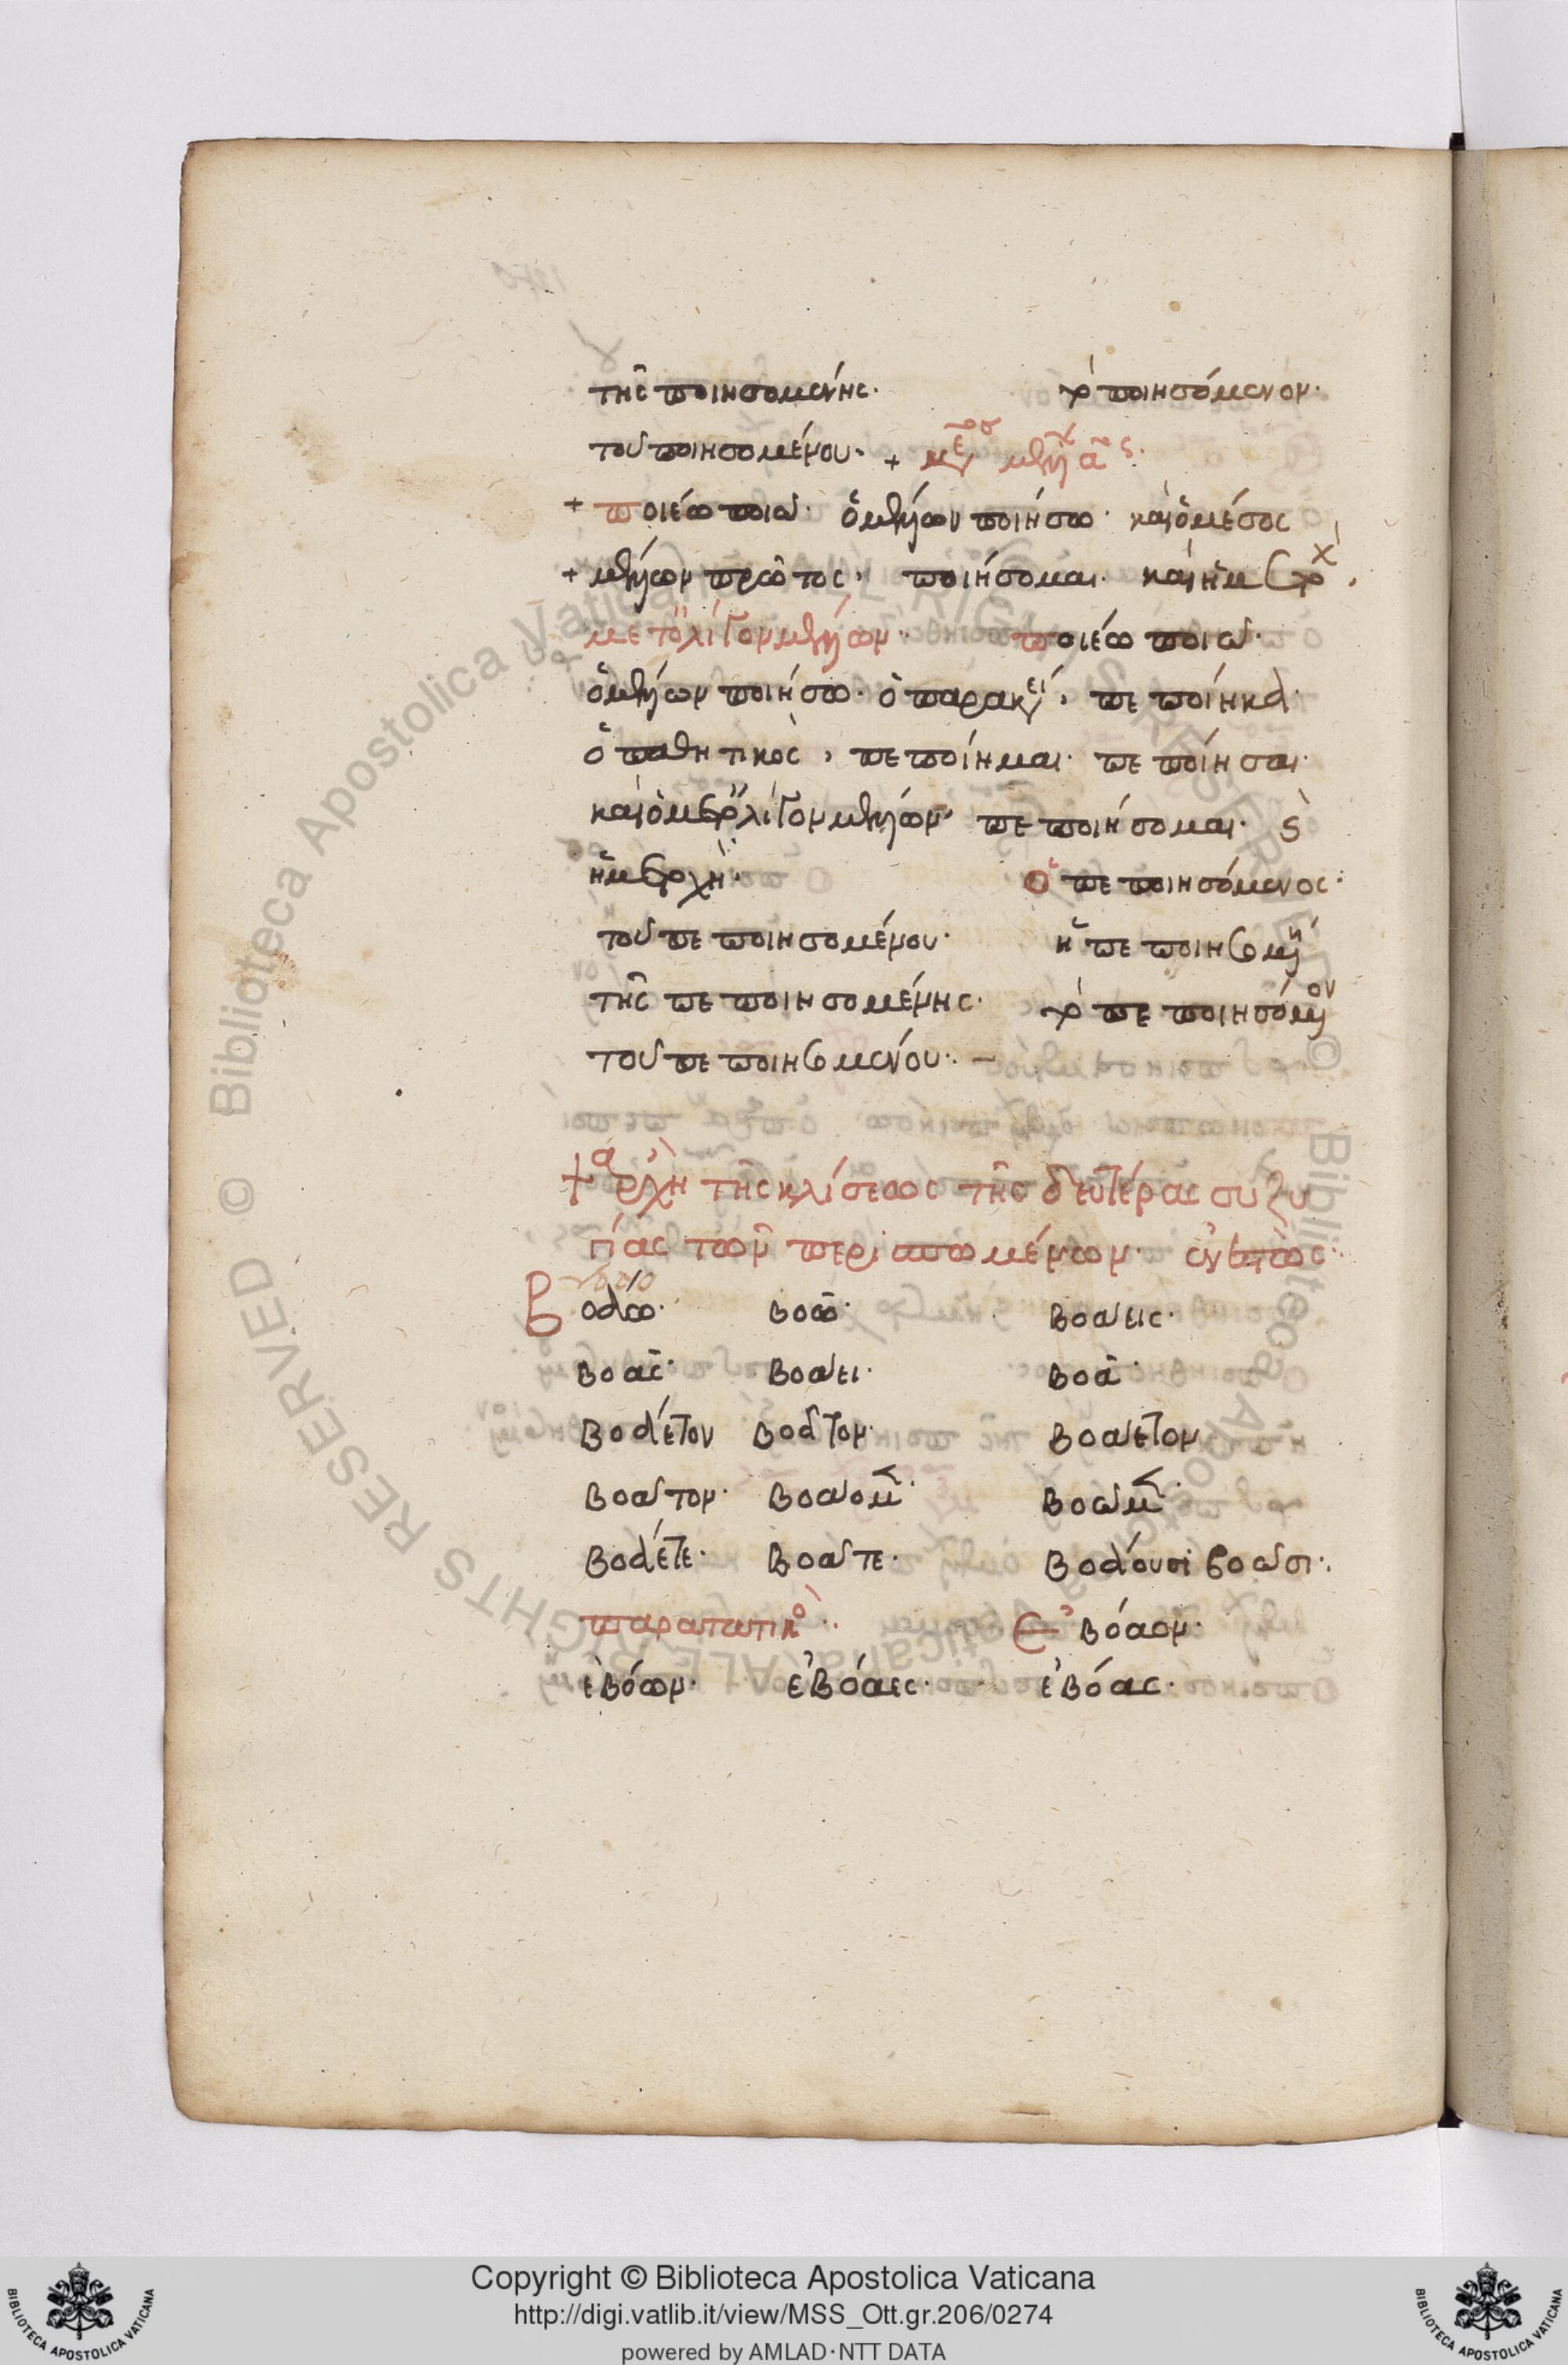 τῆς ποιησομένης· τὸ ποιησόμενον·
τοῦ ποιησομένου· + μέσου μέλλοντος αʹˢ·
+ ποιέω ποιῶ· ὁ μέλλων ποιήσω· καὶ ὁ μέσος
+ μέλλων πρῶτος, ποιήσομαι· καὶ ἡ μετοχή,
μετ' ὀλίγον μέλλων· ποιέω ποιῶ·
ὁ μέλλων ποιήσω· ὁ παρακείμενος, πεποίηκα·
ὁ παθητικὸς, πεποίημαι· πεποίησαι·
καὶ ὁ μετ' ὀλίγον μέλλων, πεποιήσομαι· ϛ
ἡ μετοχή· ὁ πεποιησόμενος·
τοῦ πεποιησομένου· ἡ πεποιησομένη
τῆς πεποιησομένης· τὸ πεποιησόμενον
τοῦ πεποιησομένου· –
+ ἀρχὴ τῆς κλίσεως τῆς δευτέρας συζυ
γίας τῶν περισπωμένων· ἐνεστώς·
βοάω· βοῶ· βοάεις·
βοᾶς· βοάει· βοᾶ·
βοάετον βοᾶτον· βοάετον
βοᾶτον· βοάομεν· βοῶμεν·
βοάετε· βοᾶτε· βοάουσι βοῶσι·
παρατατικὸς· ἐβόαον·
ἐβόων· ἐβόαες· ἐβόας·
Copyright © Biblioteca Apostolica Vaticana
http://digi.vatlib.it/view/MSS_Ott.gr.206/0274
powered by AMLAD·NTT DATA